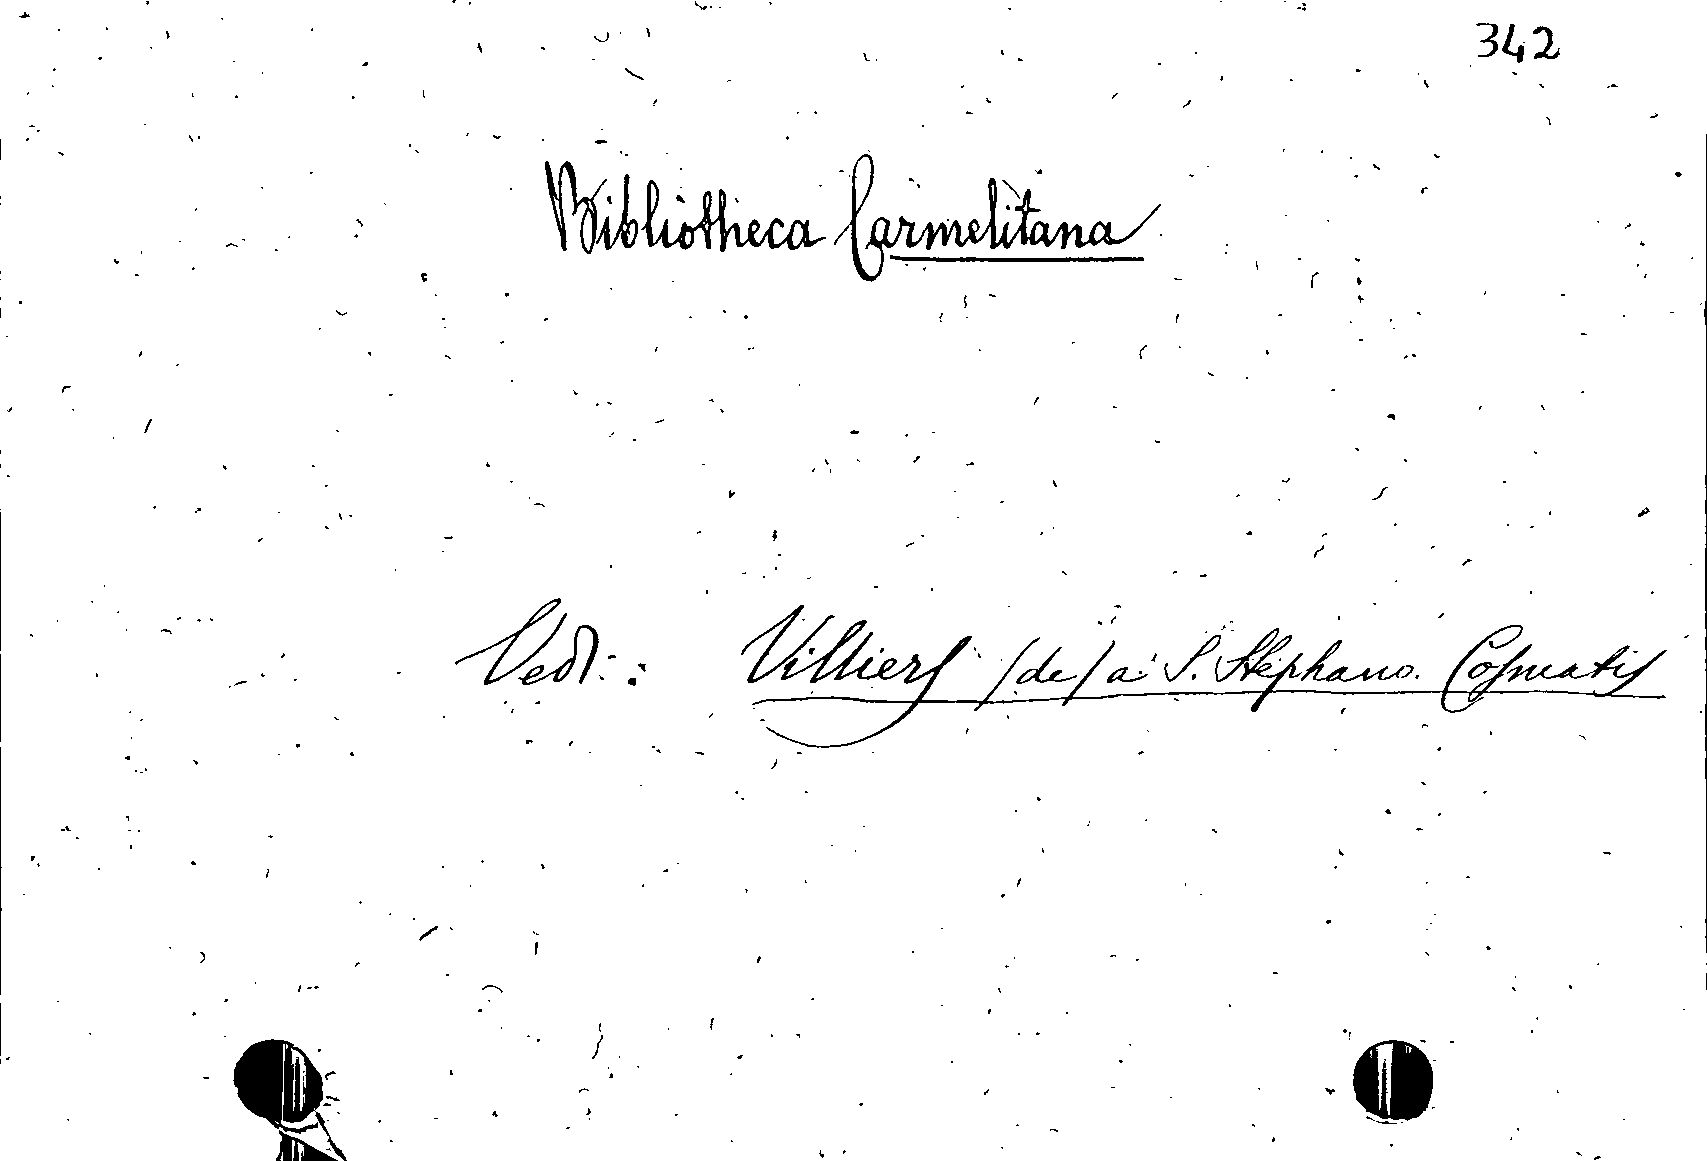 342
Bibliotheca Carmelitana
Vedi: Villiers (de) a S. Stephano. Cosmatis